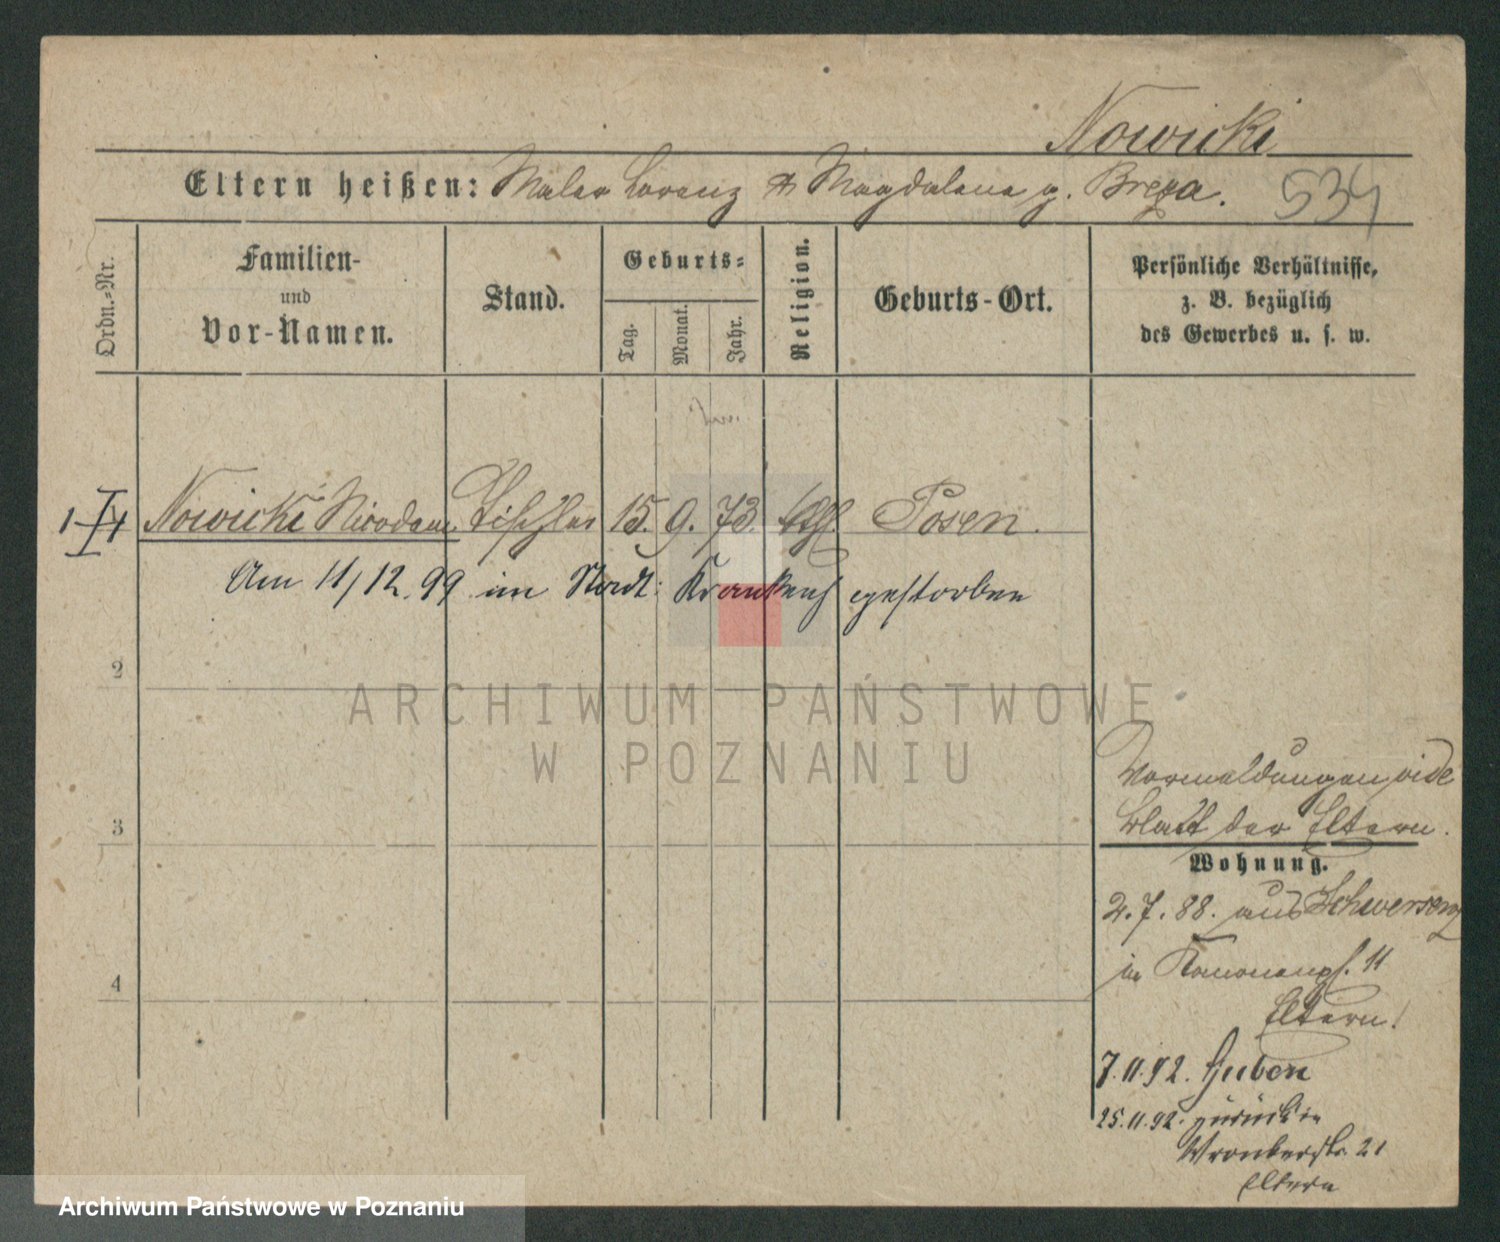 Nowicki
Eltern heißen: Maler Lorenz & Magdalena g. Breza.
534
Ordn.-Nr.
Familien-
und
Vor-Namen.
Stand.
Geburts-
Tag.
Monat.
Jahr.
Religion.
Geburts-Ort.
Persönliche Verhältnisse,
z. B. bezüglich
des Gewerbes u. s. w.
1 Nowicki Nicodem Tischler 15. 9. 73. kth Posen.
Am 11/12. 99 im Stadt: Krankenh gestorben
2
3
4
Vormeldungen vide
Blatt der Eltern.
Wohnung.
2.7.88. aus Schwersenz
in Kanonenpl. 11
Eltern!
7.11.92. Guben
25.11.92. zurück in
Wronkerstr. 21
Eltern
ARCHIWUM PAŃSTWOWE
W POZNANIU
Archiwum Państwowe w Poznaniu